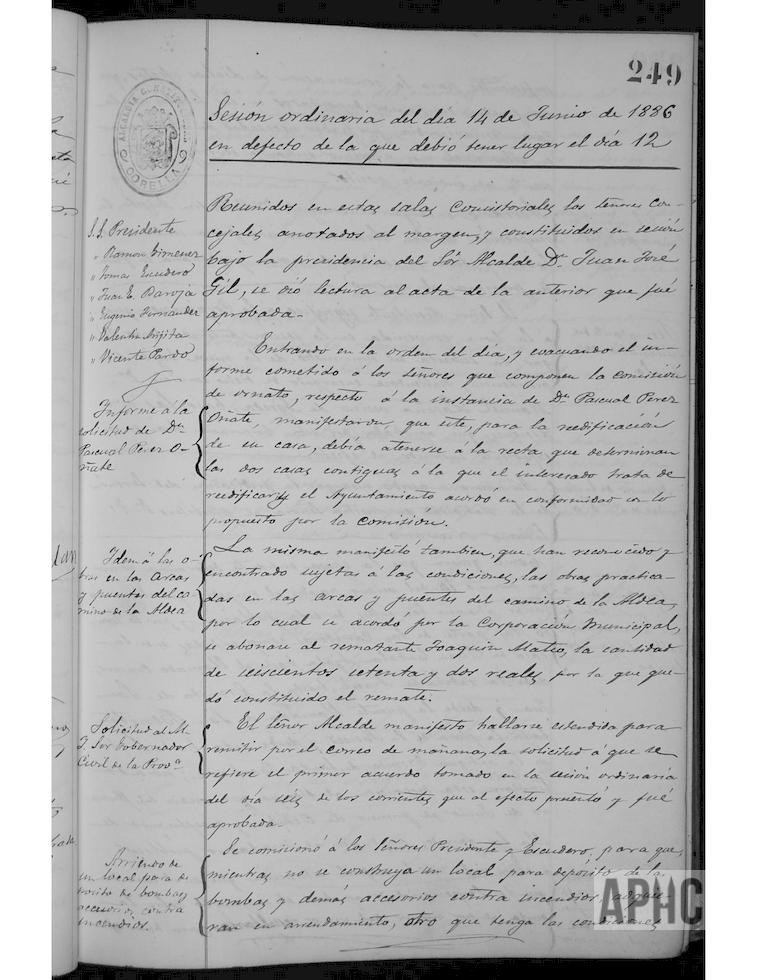 249
ALCALDIA CONSTITUCIONAL
CORELLA
Sesión ordinaria del día 14 de Junio de 1886
en defecto de la que debió tener lugar el día 12
S.S. Presidente
" Ramon Gimenez
" Tomas Escudero
" Juan E. Baroja
" Eugenio Fernandez
" Valentin Arijita
" Vicente Pardo
Reunidos en estas salas Consistoriales los señores con-
cejales anotados al margen, y constituidos en sesión
bajo la presidencia del Sór Alcalde Dn. Juan José
Gil, se dió lectura al acta de la anterior que fué
aprobada.
Informe á la
solicitud de Dn
Pascual Perez O-
ñate
Entrando en la orden del día, y evacuando el in-
forme cometido á los señores que componen la comisión
de ornato, respecto á la instancia de Dn Pascual Perez
Oñate, manifestaron, que este, para la reedificación
de su casa, debía atenerse á la recta que determinan
las dos casas contiguas á la que el interesado trata de
reedificar y el Ayuntamiento acordó en conformidad con lo
propuesto por la Comisión.
Idem á las o-
bras en las arcas
y puentes del ca-
mino de la Aldea
La misma manifestó tambien, que han reconocido y
encontrado sujetas á las condiciones, las obras practica-
das en las arcas y puentes del camino de la Aldea,
por lo cual se acordó por la Corporación Municipal,
se abonase al rematante Joaquin Mateo, la cantidad
de seiscientos setenta y dos reales por la que que-
dó constituido el remate.
Solicitud al M.
I. Sor Gobernador
Civil de la Prova
El señor Alcalde manifesto hallarse estendida para
remitir por el correo de mañana, la solicitud á que se
refiere el primer acuerdo tomado en la sesión ordinaria
del día seis de los corrientes que al efecto presentó y fué
aprobada.
Arriendo de
un local para de-
posito de bombas y
accesorios contra
incendios.
Se comisionó á los Señores Presidente y Escudero, para que,
mientras no se construya un local para deposito de las
bombas y demás accesorios contra incendios, adquie-
ran en arrendamiento, otro que tenga las condiciones
APHC